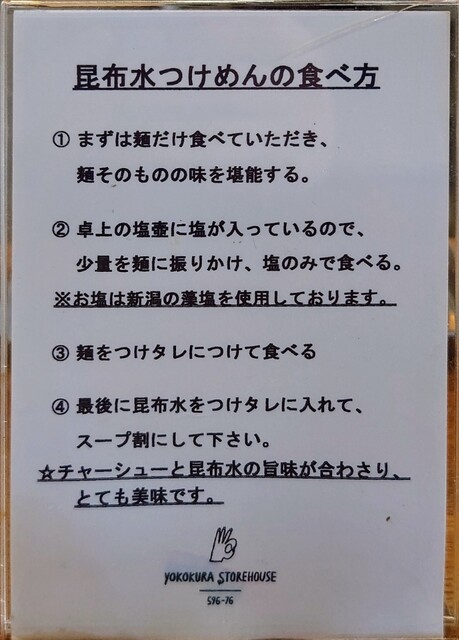 昆布水つけめんの食べ方
① まずは麺だけ食べていただき、
麺そのものの味を堪能する。
② 卓上の塩壺に塩が入っているので、
少量を麺に振りかけ、塩のみで食べる。
※お塩は新潟の藻塩を使用しております。
③ 麺をつけタレにつけて食べる
④ 最後に昆布水をつけタレに入れて、
スープ割にして下さい。
☆チャーシューと昆布水の旨味が合わさり、
とても美味です。
YOKOKURA STOREHOUSE
596-76